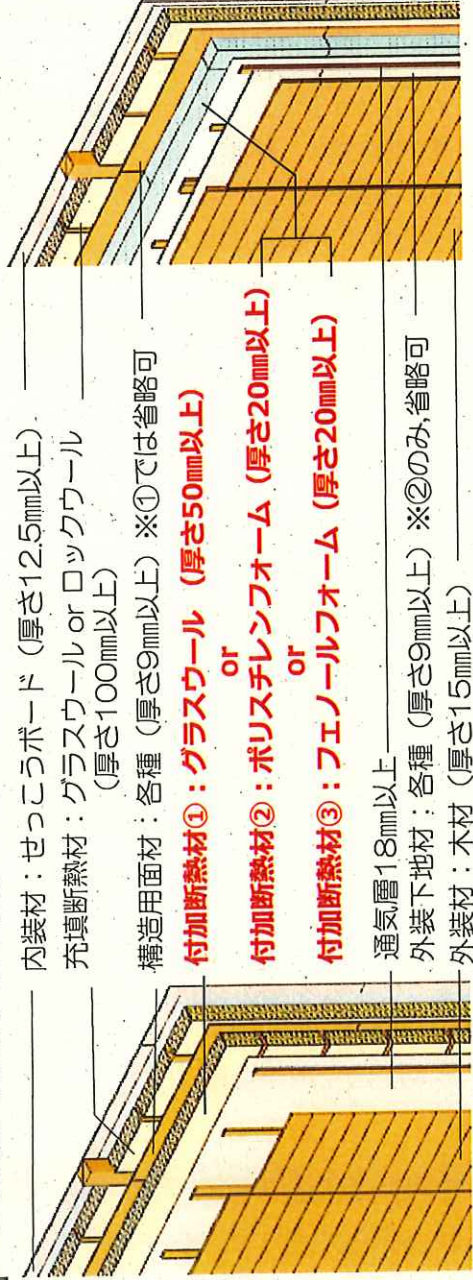 内装材：せっこうボード（厚さ12.5mm以上）
充填断熱材：グラスウール or ロックウール
（厚さ100mm以上）
構造用面材：各種（厚さ9mm以上）※①では省略可
付加断熱材①：グラスウール（厚さ50mm以上）
or
付加断熱材②：ポリスチレンフォーム（厚さ20mm以上）
or
付加断熱材③：フェノールフォーム（厚さ20mm以上）
通気層18mm以上
外装下地材：各種（厚さ9mm以上）※②のみ省略可
外装材：木材（厚さ15mm以上）